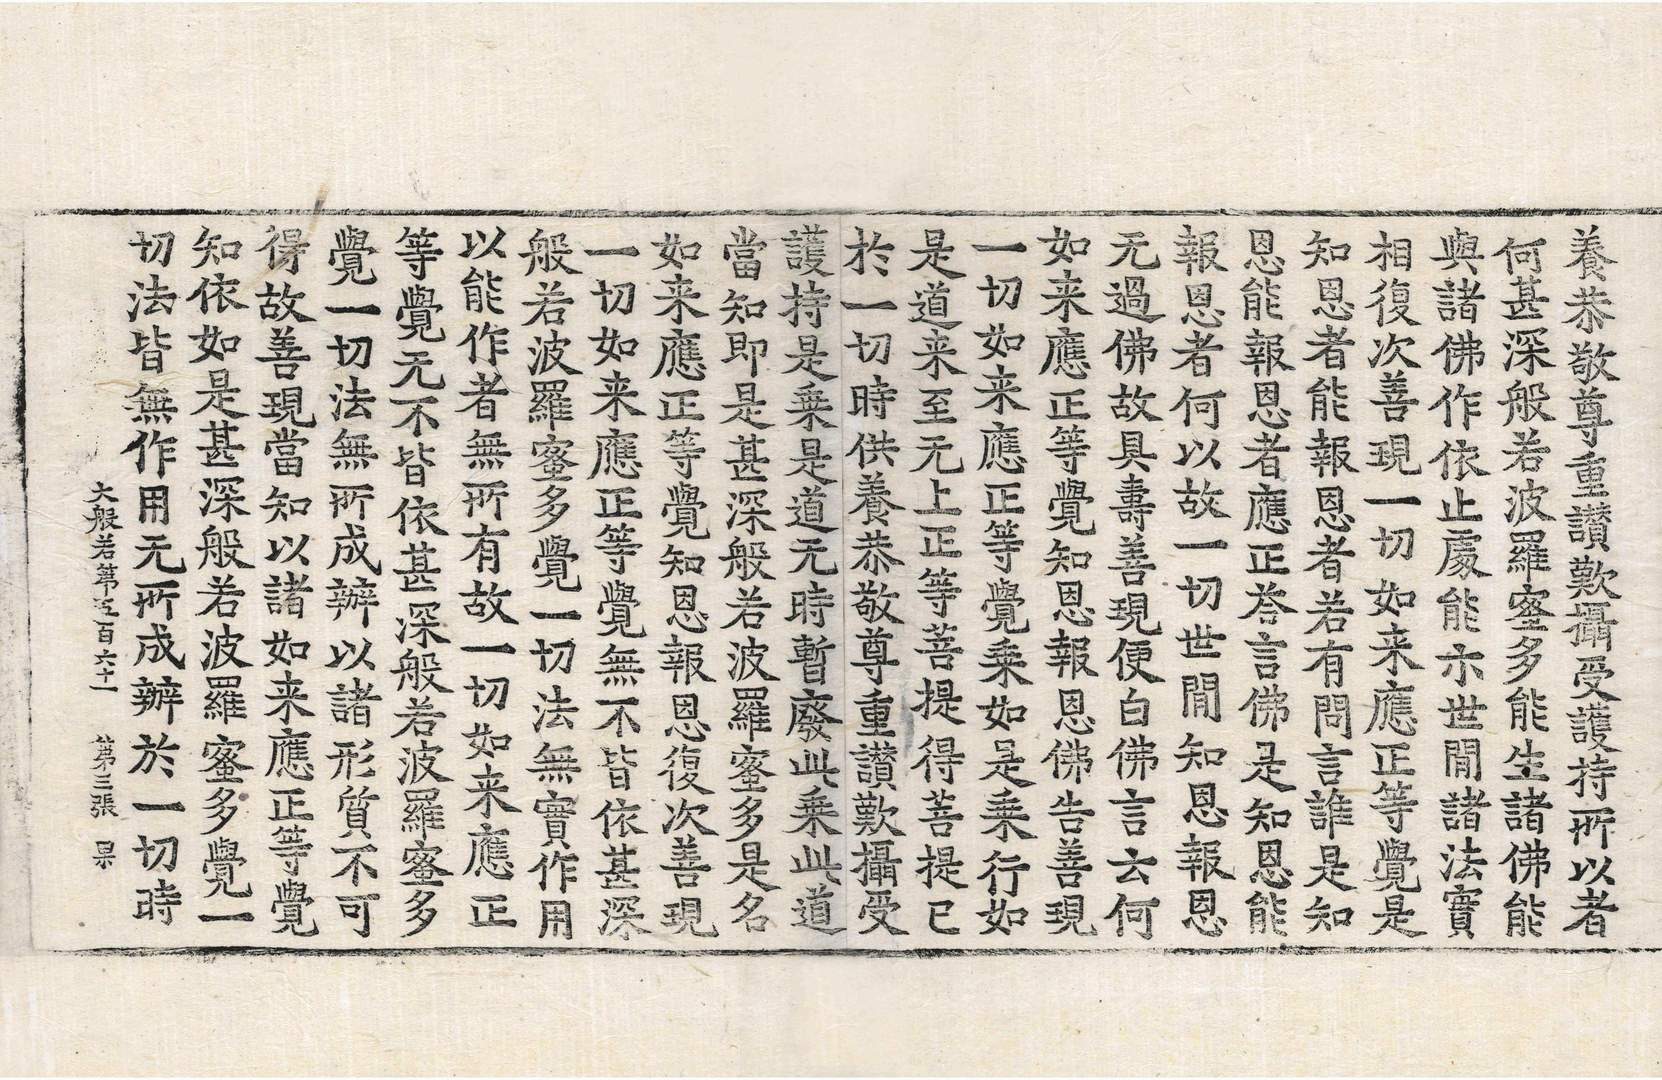 養恭敬尊重讚歎攝受護持所以者
何甚深般若波羅蜜多能生諸佛能
與諸佛作依止處能示世間諸法實
相復次善現一切如来應正等覺是
知恩者能報恩者若有問言誰是知
恩能報恩者應正荅言佛是知恩能
報恩者何以故一切世間知恩報恩
无過佛故具壽善現便白佛言云何
如来應正等覺知恩報恩佛告善現
一切如来應正等覺乗如是乗行如
是道来至无上正等菩提得菩提已
於一切時供養恭敬尊重讚歎攝受
護持是乗是道无時暫廢此乗此道
當知即是甚深般若波羅蜜多是名
如来應正等覺知恩報恩復次善現
一切如来應正等覺無不皆依甚深
般若波羅蜜多覺一切法無實作用
以能作者無所有故一切如来應正
等覺无不皆依甚深般若波羅蜜多
覺一切法無所成辦以諸形質不可
得故善現當知以諸如来應正等覺
知依如是甚深般若波羅蜜多覺一
切法皆無作用无所成辦於一切時
大般若第五百六十一　第三張　杲